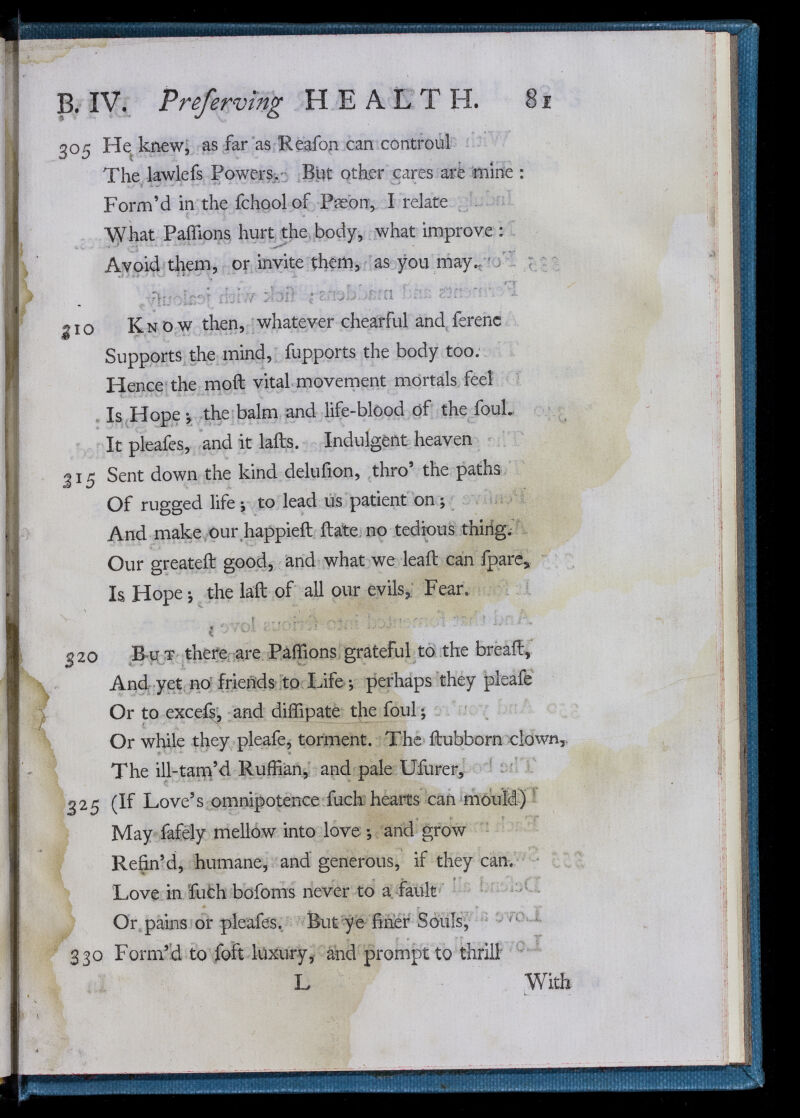 B. IV. Preſerving HEALTH. 81
305 He knew, as far as Reaſon can controul
The lawleſs Powers. But other cares are mine :
Form'd in the ſchool of Pæon, I relate
What Paſſions hurt the body, what improve :
Avoid them, or invite them, as you may.
310 KNOW then, whatever chearful and ſerene
Supports the mind, ſupports the body too.
Hence the moſt vital movement mortals feel
Is Hope ; the balm and life-blood of the ſoul.
It pleaſes, and it laſts. Indulgent heaven
315 Sent down the kind deluſion, thro' the paths
Of rugged life ; to lead us patient on ;
And make our happieſt ſtate no tedious thing.
Our greateſt good, and what we leaſt can ſpare,
Is Hope ; the laſt of all our evils, Fear.
320 BUT there are Paſſions grateful to the breaſt,
And yet no friends to Life ; perhaps they pleaſe
Or to exceſs, and diſſipate the ſoul ;
Or while they pleaſe, torment. The ſtubborn clown,
The ill-tam'd Ruffian, and pale Uſurer,
325 (If Love's omnipotence ſuch hearts can mould)
May ſafely mellow into love ; and grow
Refin'd, humane, and generous, if they can.
Love in ſuch boſoms never to a fault
Or pains or pleaſes. But ye finer Souls,
330 Form'd to ſoft luxury, and prompt to thrill
L With